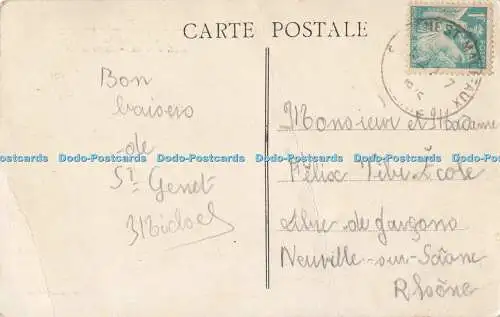 CARTE POSTALE
Bon
baisers
de
St Genet
Michael
Monsieur et Madame
Félix Ecole
libre de garçons
Neuville-sur-Saône
Rhône
Dodo-Postcards Dodo-Postcards Dodo-Postcards Dodo-Postcards Dodo-Postcards Dodo-Postcards